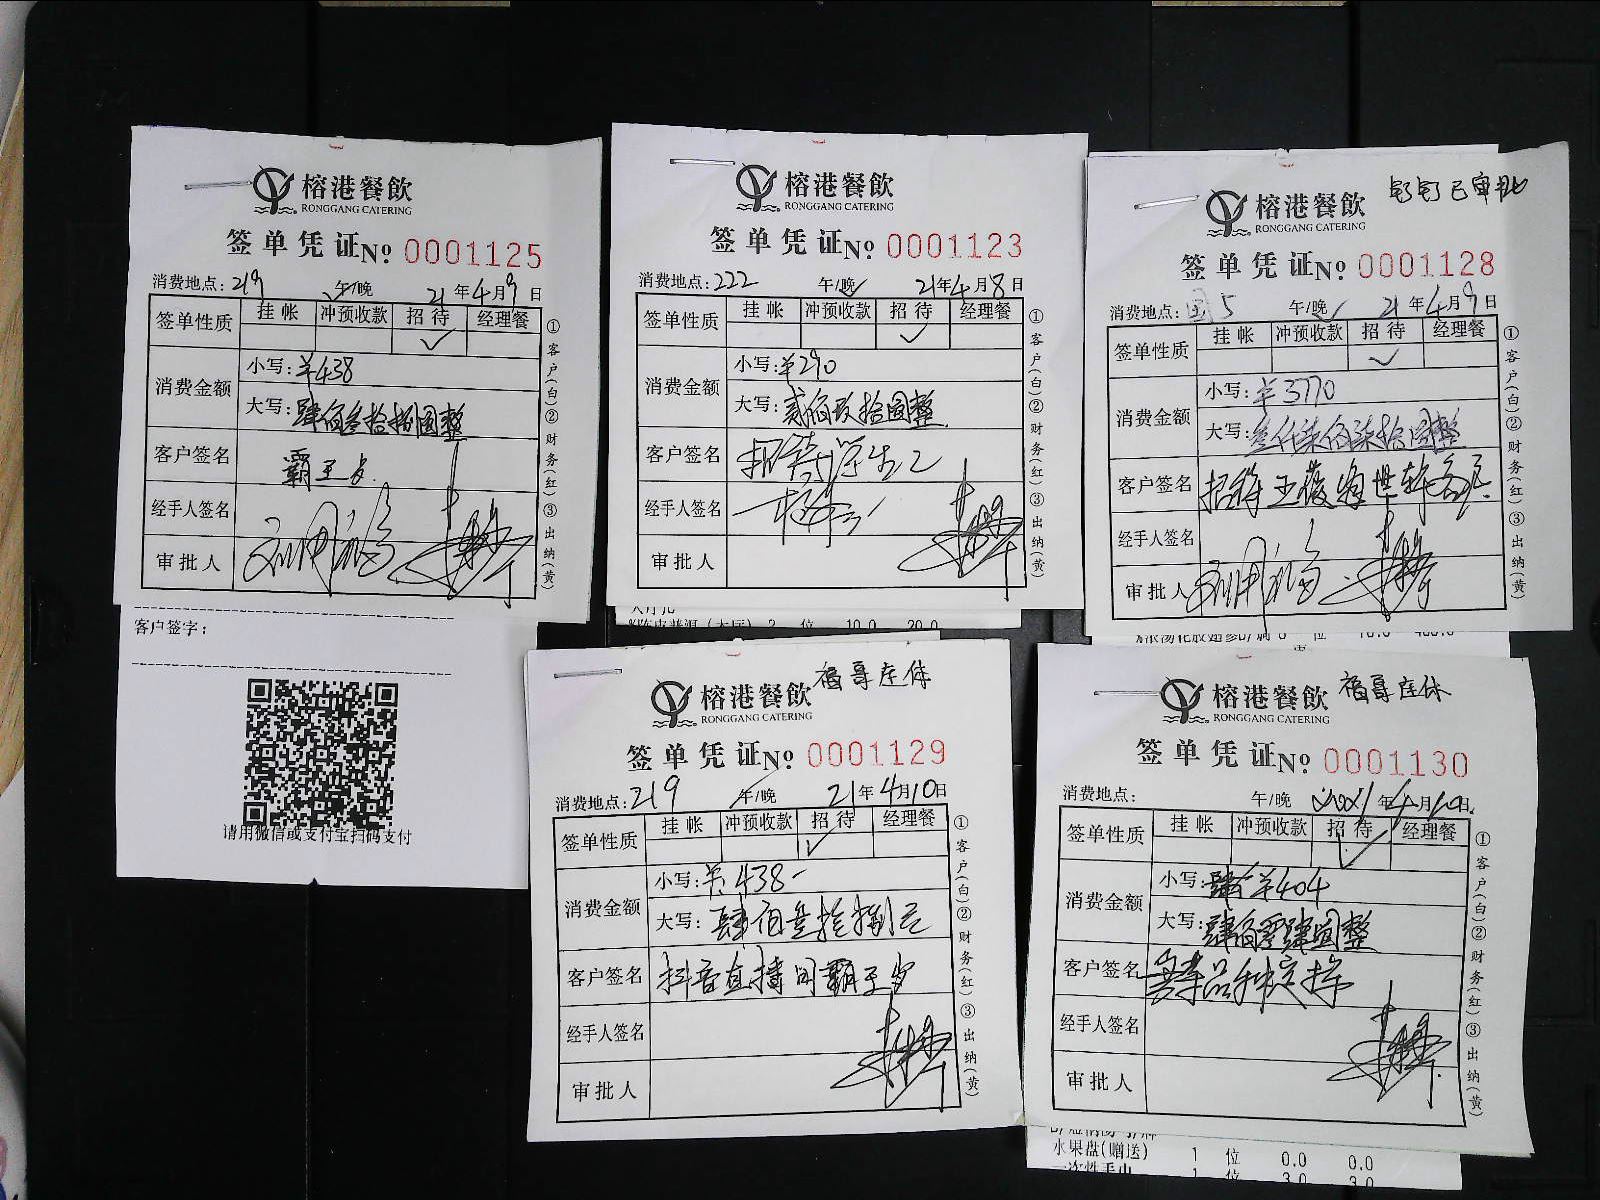 榕港餐飲
RONGGANG CATERING
签单凭证No 0001125
消费地点：219 午/晚 21年4月9日
签单性质 挂帐 冲预收款 招待 经理餐
消费金额 小写：¥438
大写：肆佰叁拾捌圆整
客户签名 霸王岁
经手人签名
审批人
①客户(白)②财务(红)③出纳(黄)
客户签字：
请用微信或支付宝扫码支付
榕港餐飲
RONGGANG CATERING
签单凭证No 0001123
消费地点：222 午/晚 21年4月8日
签单性质 挂帐 冲预收款 招待 经理餐
消费金额 小写：¥290
大写：贰佰玖拾圆整
客户签名 招待
经手人签名
审批人
①客户(白)②财务(红)③出纳(黄)
20.0
钉钉已审批
榕港餐飲
RONGGANG CATERING
签单凭证No 0001128
消费地点：5 午/晚 21年4月9日
签单性质 挂帐 冲预收款 招待 经理餐
消费金额 小写：¥3770
大写：叁仟柒佰柒拾圆整
客户签名 招待王薇
经手人签名
审批人
①客户(白)②财务(红)③出纳(黄)
福哥在休
榕港餐飲
RONGGANG CATERING
签单凭证No 0001129
消费地点：219 午/晚 21年4月10日
签单性质 挂帐 冲预收款 招待 经理餐
消费金额 小写：¥438-
大写：肆佰叁拾捌元
客户签名 抖音直播用霸王岁
经手人签名
审批人
①客户(白)②财务(红)③出纳(黄)
福哥在休
榕港餐飲
RONGGANG CATERING
签单凭证No 0001130
消费地点： 午/晚 2021年4月10日
签单性质 挂帐 冲预收款 招待 经理餐
消费金额 小写：¥404
大写：肆佰零肆圆整
客户签名
经手人签名
审批人
①客户(白)②财务(红)③出纳(黄)
水果盘(赠送) 1 位 0.0 0.0
1 位 3.0 3.0